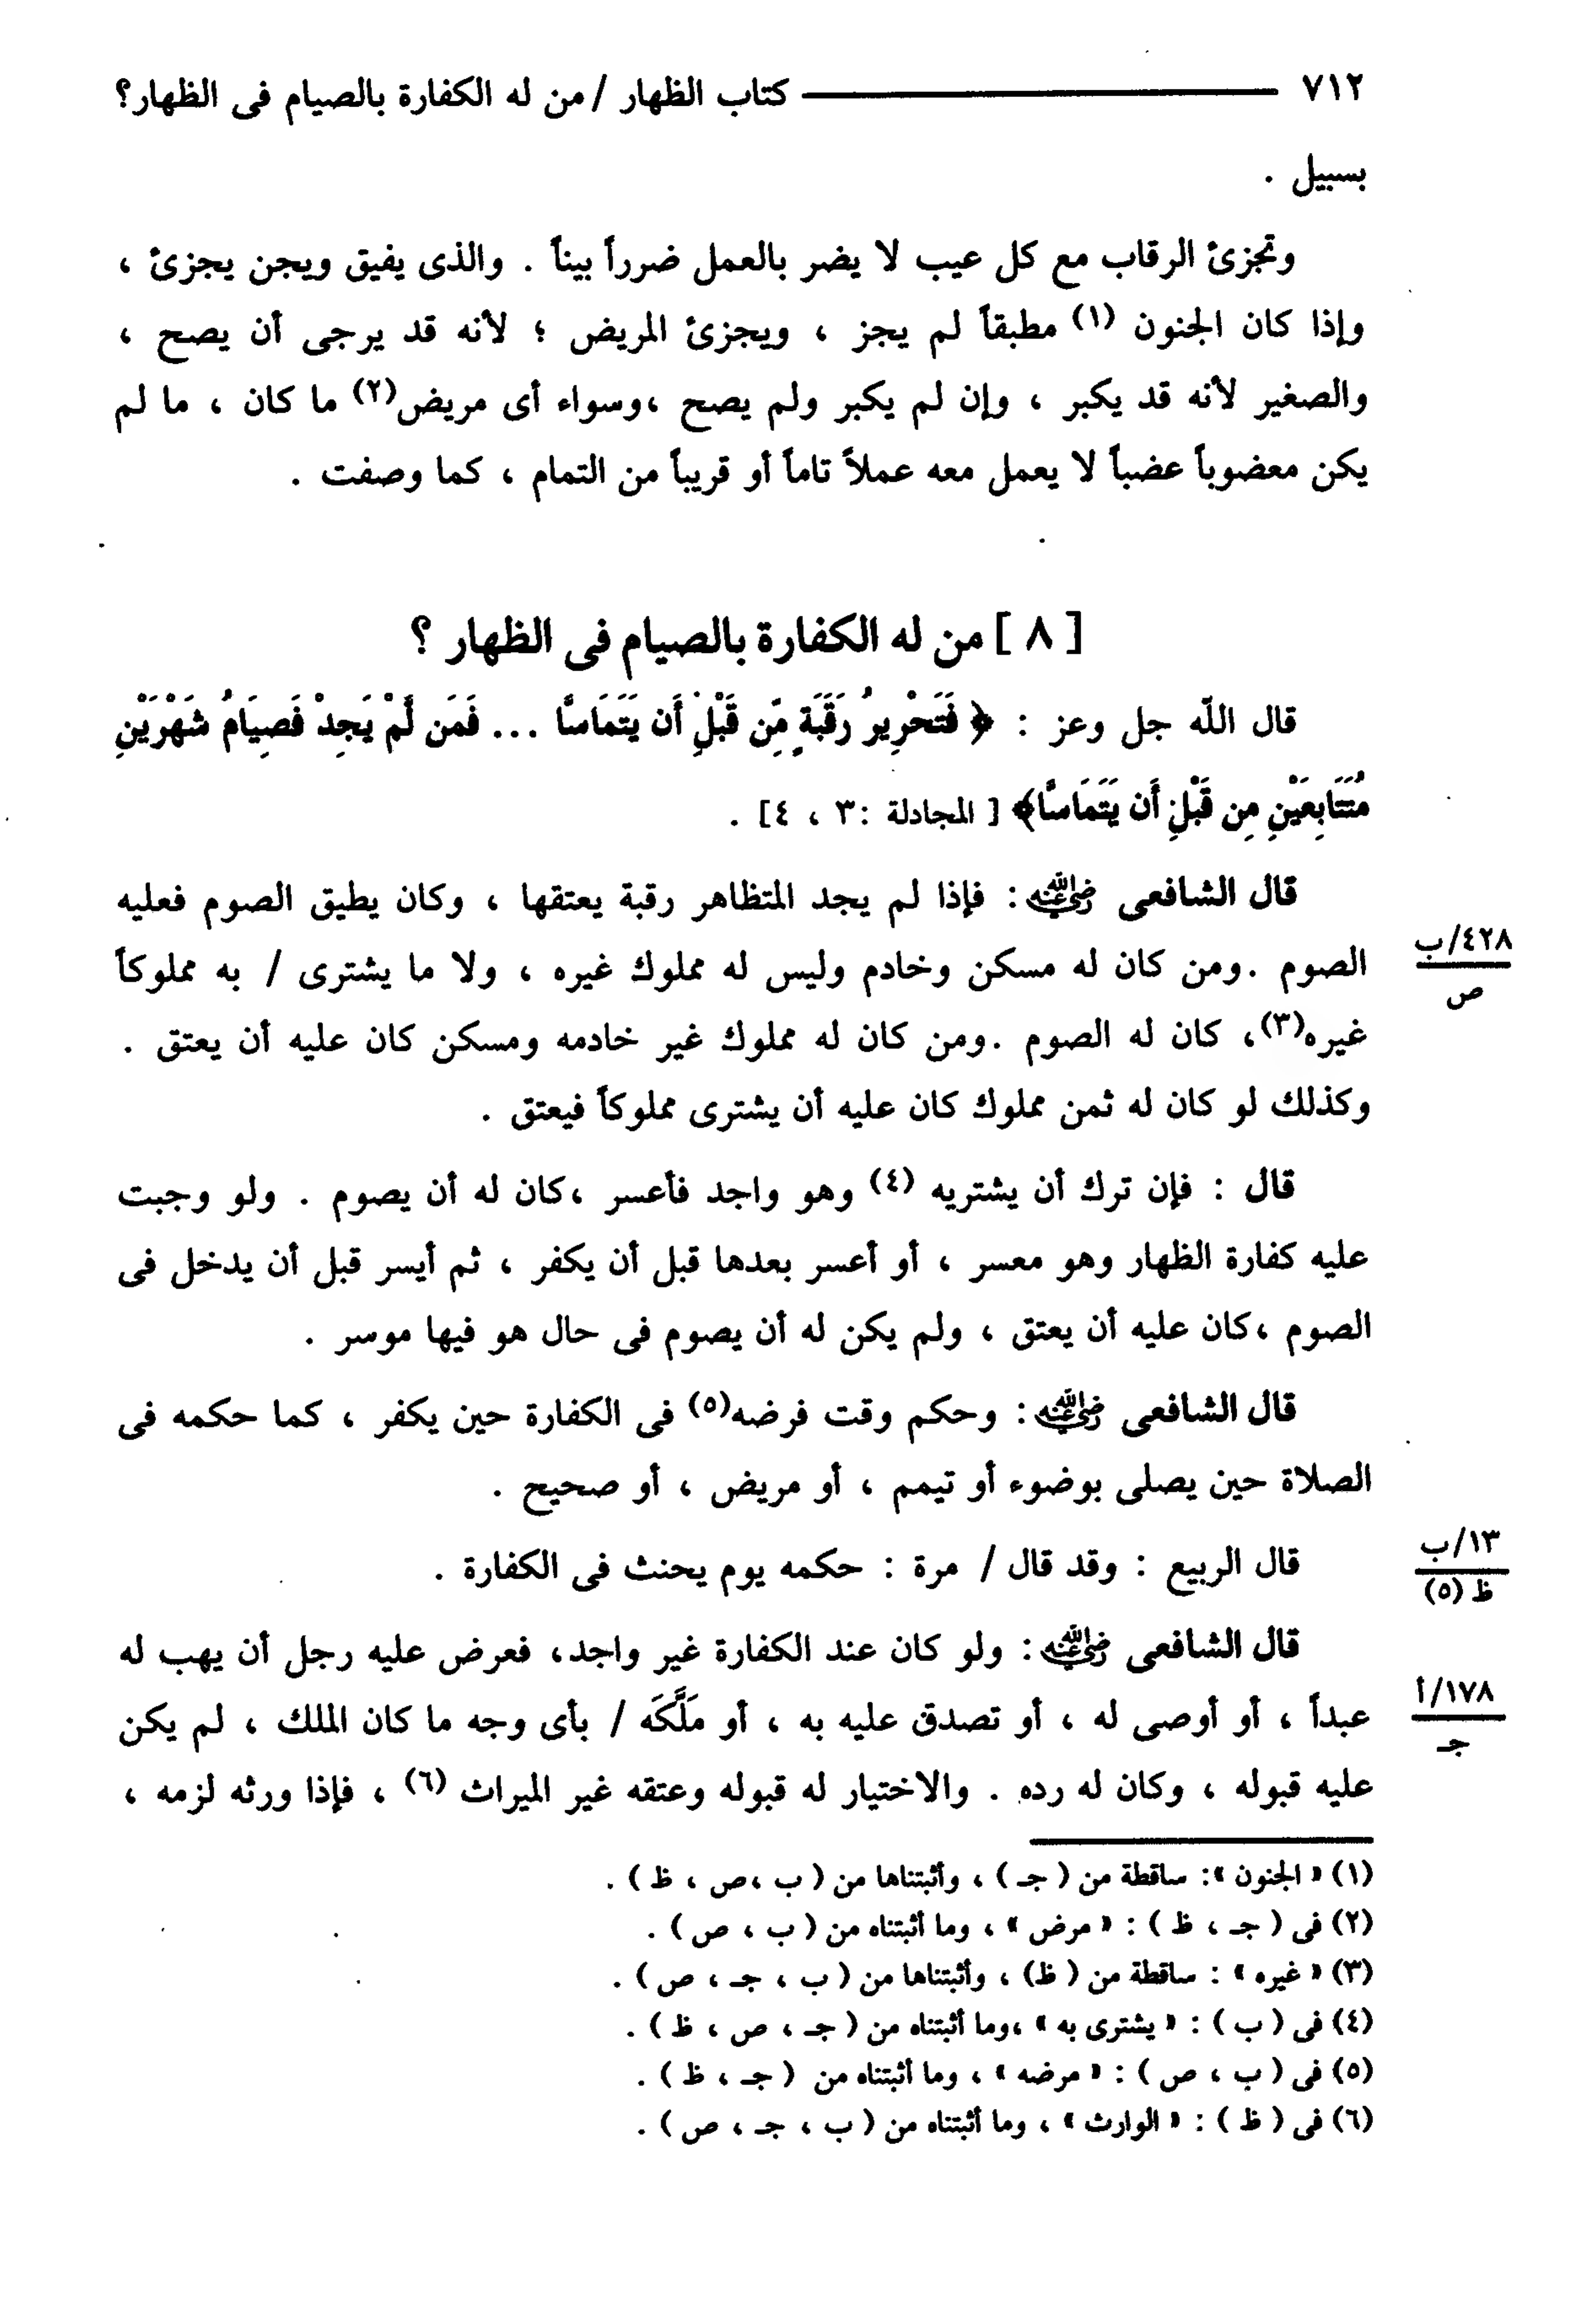 ٧١٢ ــــــــــــــــ كتاب الظهار / من له الكفارة بالصيام فى الظهار؟
بسبيل .
وتجزئ الرقاب مع كل عيب لا يضر بالعمل ضرراً بيناً . والذى يفيق ويجن يجزئ ،
وإذا كان الجنون (١) مطبقاً لم يجز ، ويجزئ المريض ؛ لأنه قد يرجى أن يصح ،
والصغير لأنه قد يكبر ، وإن لم يكبر ولم يصح ،وسواء أى مريض(٢) ما كان ، ما لم
يكن معضوباً عضباً لا يعمل معه عملاً تاماً أو قريباً من التمام ، كما وصفت .
[ ٨ ] من له الكفارة بالصيام فى الظهار ؟
قال الله جل وعز : ﴿ فَتَحْرِيرُ رَقَبَةٍ مِّن قَبْلِ أَن يَتَمَاسَّا ... فَمَن لَّمْ يَجِدْ فَصِيَامُ شَهْرَيْنِ
مُتَتَابِعَيْنِ مِن قَبْلِ أَن يَتَمَاسَّا﴾ [ المجادلة :٣ ، ٤] .
قال الشافعى رضي الله عنه : فإذا لم يجد المتظاهر رقبة يعتقها ، وكان يطيق الصوم فعليه
الصوم .ومن كان له مسكن وخادم وليس له مملوك غيره ، ولا ما يشترى / به مملوكاً
٤٢٨/ب
ص
غيره(٣)، كان له الصوم .ومن كان له مملوك غير خادمه ومسكن كان عليه أن يعتق .
وكذلك لو كان له ثمن مملوك كان عليه أن يشترى مملوكاً فيعتق .
قال : فإن ترك أن يشتريه (٤) وهو واجد فأعسر ،كان له أن يصوم . ولو وجبت
عليه كفارة الظهار وهو معسر ، أو أعسر بعدها قبل أن يكفر ، ثم أيسر قبل أن يدخل فى
الصوم ،كان عليه أن يعتق ، ولم يكن له أن يصوم فى حال هو فيها موسر .
قال الشافعى رضي الله عنه : وحكم وقت فرضه(٥) فى الكفارة حين يكفر ، كما حكمه فى
الصلاة حين يصلى بوضوء أو تيمم ، أو مريض ، أو صحيح .
قال الربيع : وقد قال / مرة : حكمه يوم يحنث فى الكفارة .
١٣/ب
ظ (٥)
قال الشافعى رضي الله عنه : ولو كان عند الكفارة غير واجد، فعرض عليه رجل أن يهب له
عبداً ، أو أوصى له ، أو تصدق عليه به ، أو مَلَّكَه / بأى وجه ما كان الملك ، لم يكن
١٧٨/أ
جـ
عليه قبوله ، وكان له رده . والاختيار له قبوله وعتقه غير الميراث (٦) ، فإذا ورثه لزمه ،
(١) « الجنون »: ساقطة من ( جـ ) ، وأثبتناها من ( ب ،ص ، ظ ) .
(٢) فى ( جـ ، ظ ) : « مرض » ، وما أثبتناه من ( ب ، ص ) .
(٣) « غيره » : ساقطة من ( ظ) ، وأثبتناها من ( ب ، جـ ، ص ) .
(٤) فى ( ب ) : « يشترى به » ،وما أثبتناه من ( جـ ، ص ، ظ ) .
(٥) فى ( ب ، ص ) : « مرضه » ، وما أثبتناه من ( جـ ، ظ ) .
(٦) فى ( ظ ) : « الوارث » ، وما أثبتناه من ( ب ، جـ ، ص ) .